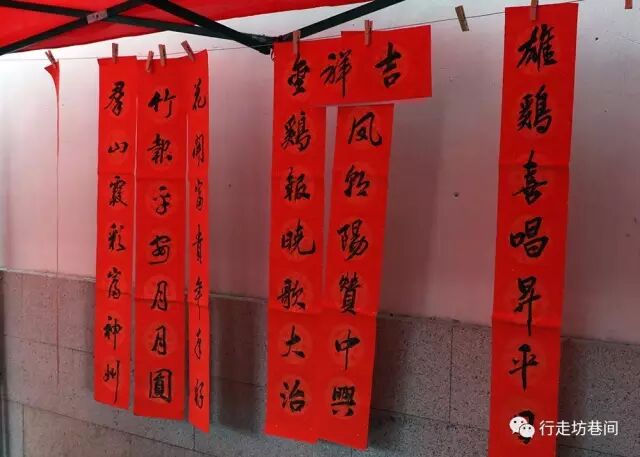 雄鷄喜唱昇平
吉祥
鳳朝陽贊中興
金鷄報曉歌大治
花開富貴年年好
竹報平安月月圓
羣山霞彩富神州
行走坊巷间